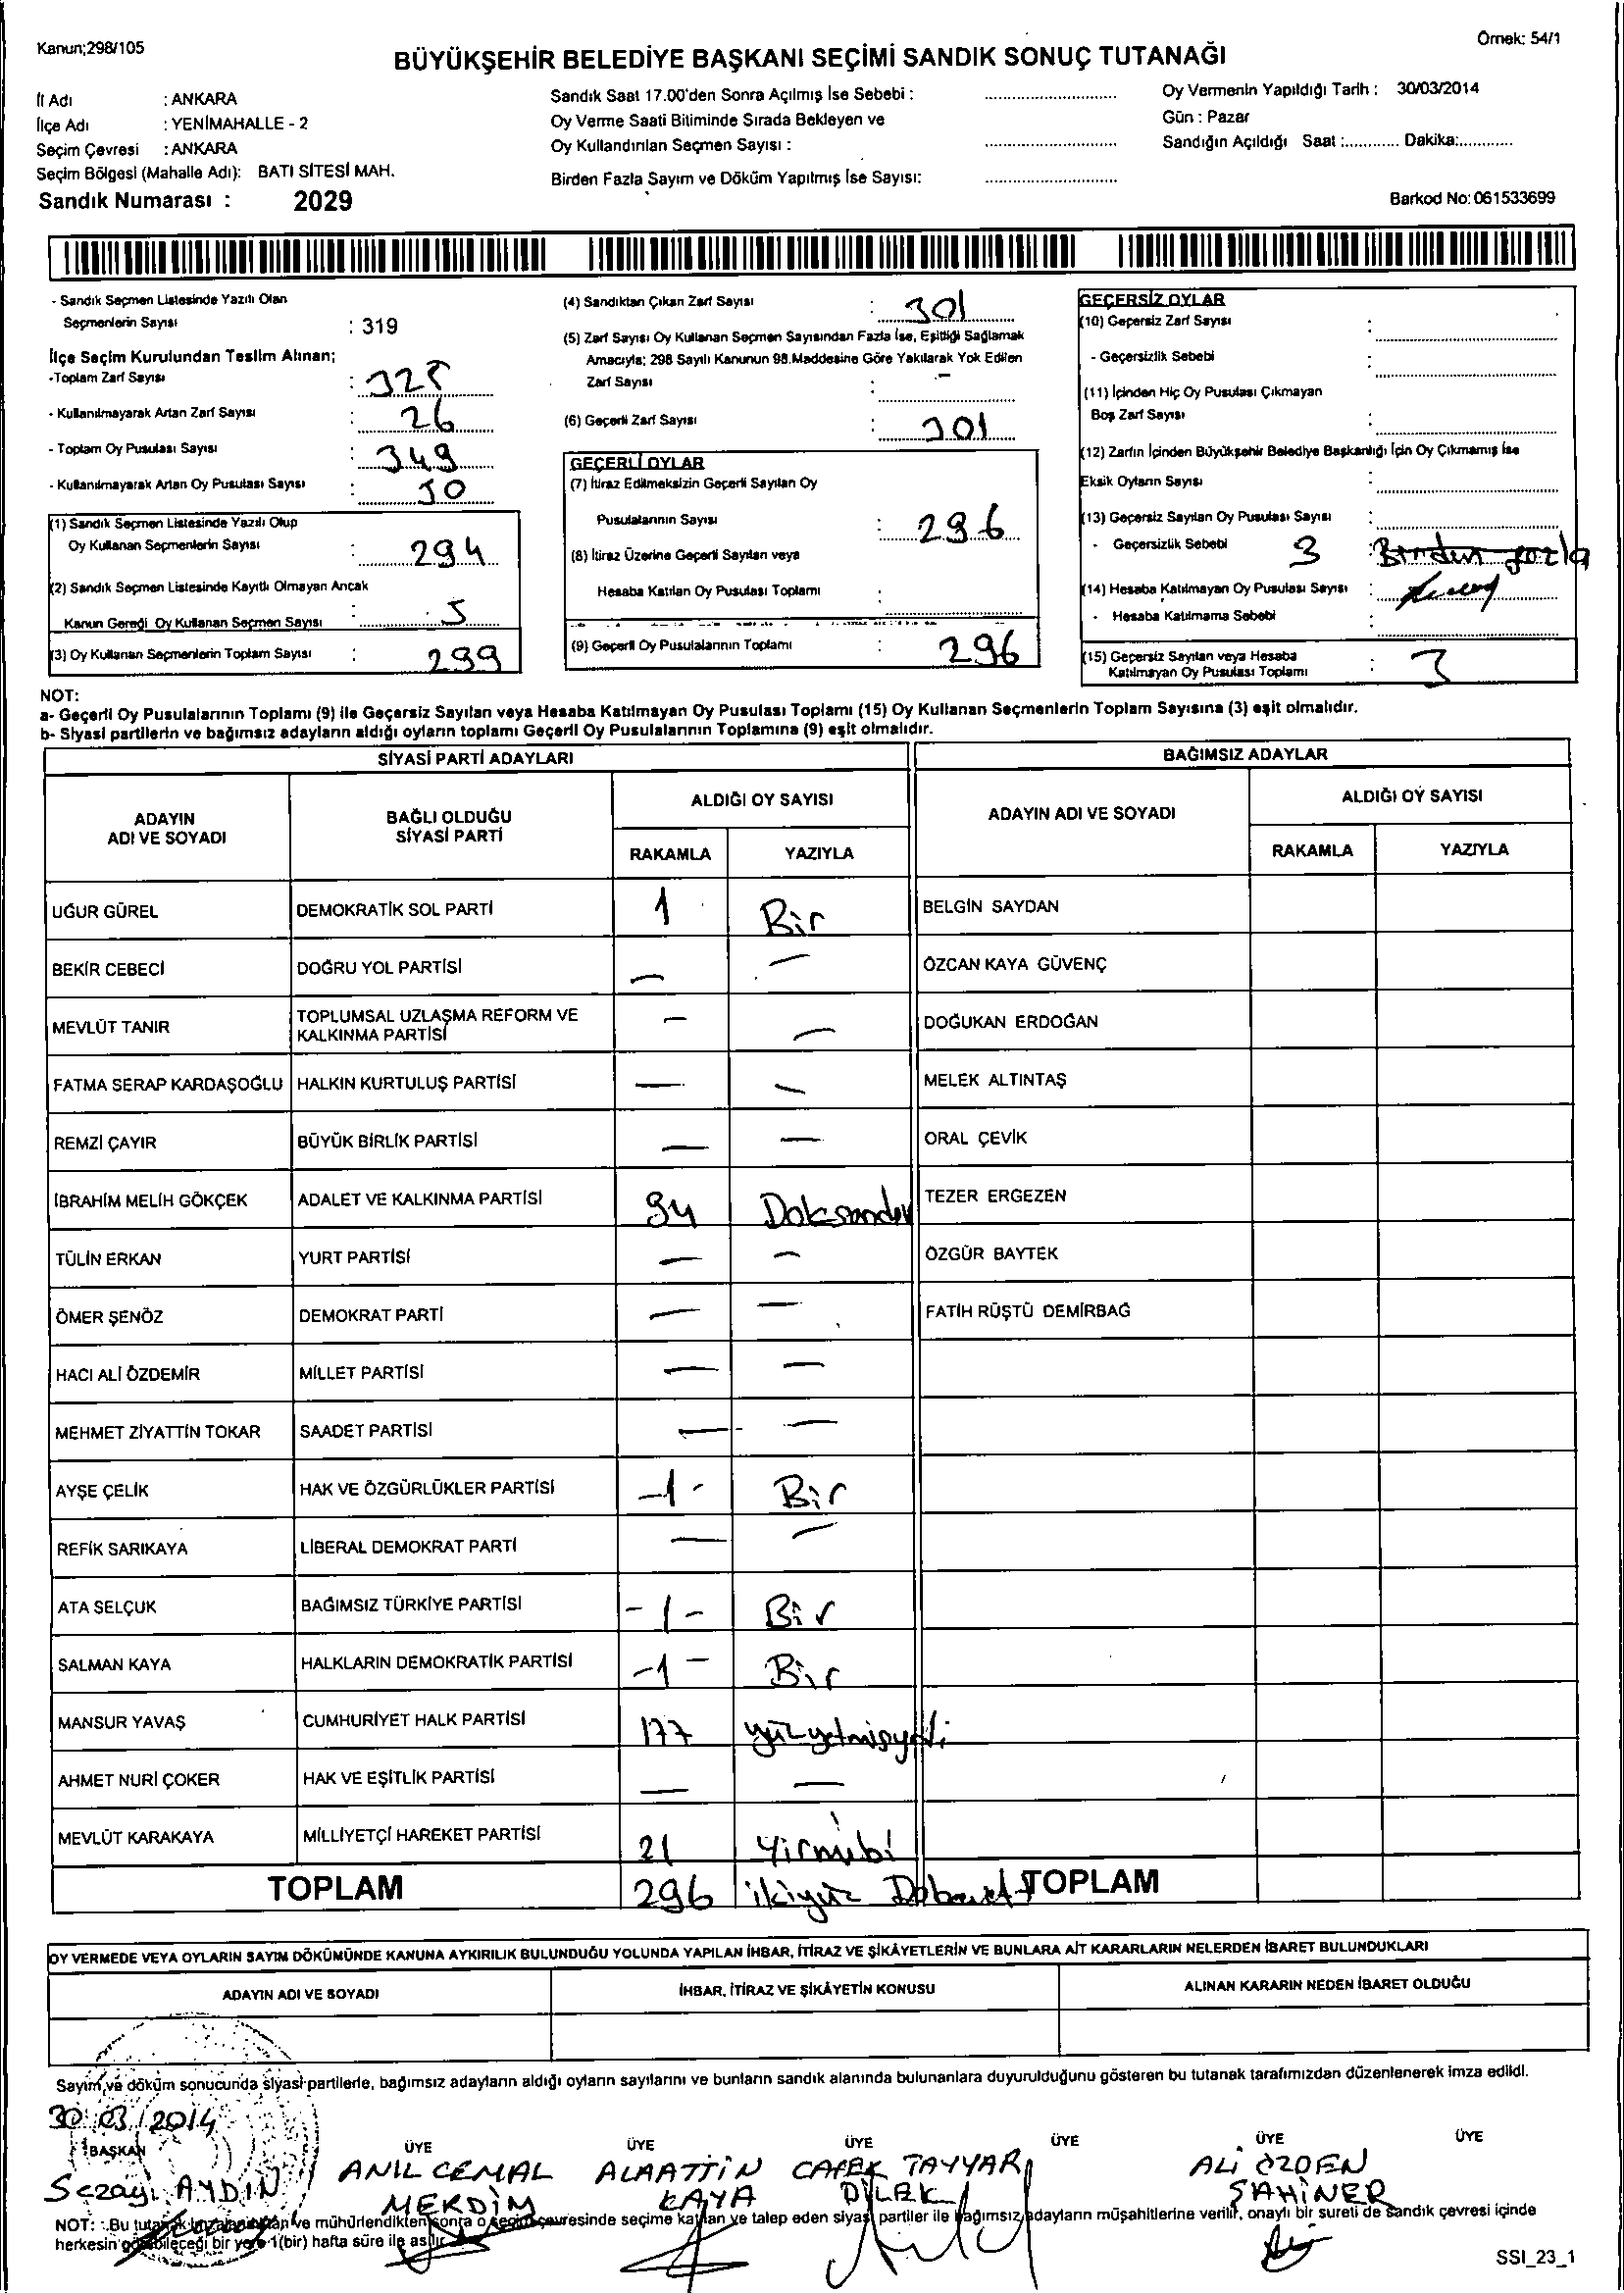 Kanun;298/105
Örnek: 54/1
BÜYÜKŞEHİR BELEDİYE BAŞKANI SEÇİMİ SANDIK SONUÇ TUTANAĞI
İl Adı : ANKARA
İlçe Adı : YENİMAHALLE - 2
Seçim Çevresi : ANKARA
Seçim Bölgesi (Mahalle Adı): BATI SİTESİ MAH.
Sandık Numarası : 2029
Sandık Saat 17.00'den Sonra Açılmış İse Sebebi :
Oy Verme Saati Bitiminde Sırada Bekleyen ve
Oy Kullandırılan Seçmen Sayısı :
Birden Fazla Sayım ve Döküm Yapılmış İse Sayısı:
Oy Vermenin Yapıldığı Tarih : 30/03/2014
Gün : Pazar
Sandığın Açıldığı Saat :............ Dakika:............
Barkod No: 061533699
- Sandık Seçmen Listesinde Yazılı Olan
Seçmenlerin Sayısı : 319
İlçe Seçim Kurulundan Teslim Alınan;
-Toplam Zarf Sayısı : 325
- Kullanılmayarak Artan Zarf Sayısı : 26
- Toplam Oy Pusulası Sayısı : 349
- Kullanılmayarak Artan Oy Pusulası Sayısı : 50
(1) Sandık Seçmen Listesinde Yazılı Olup
Oy Kullanan Seçmenlerin Sayısı : 294
(2) Sandık Seçmen Listesinde Kayıtlı Olmayan Ancak
Kanun Gereği Oy Kullanan Seçmen Sayısı : 5
(3) Oy Kullanan Seçmenlerin Toplam Sayısı : 299
(4) Sandıktan Çıkan Zarf Sayısı : 301
(5) Zarf Sayısı Oy Kullanan Seçmen Sayısından Fazla İse, Eşitliği Sağlamak
Amacıyla; 298 Sayılı Kanunun 98.Maddesine Göre Yakılarak Yok Edilen
Zarf Sayısı : -
(6) Geçerli Zarf Sayısı : 301
GEÇERLİ OYLAR
(7) İtiraz Edilmeksizin Geçerli Sayılan Oy
Pusulalarının Sayısı : 296
(8) İtiraz Üzerine Geçerli Sayılan veya
Hesaba Katılan Oy Pusulası Toplamı :
(9) Geçerli Oy Pusulalarının Toplamı : 296
GEÇERSİZ OYLAR
(10) Geçersiz Zarf Sayısı :
- Geçersizlik Sebebi :
(11) İçinden Hiç Oy Pusulası Çıkmayan
Boş Zarf Sayısı :
(12) Zarfın İçinden Büyükşehir Belediye Başkanlığı İçin Oy Çıkmamış İse
Eksik Oyların Sayısı :
(13) Geçersiz Sayılan Oy Pusulası Sayısı :
- Geçersizlik Sebebi 3 : Birden fazla
(14) Hesaba Katılmayan Oy Pusulası Sayısı :
- Hesaba Katılmama Sebebi :
(15) Geçersiz Sayılan veya Hesaba
Katılmayan Oy Pusulası Toplamı : 3
NOT:
a- Geçerli Oy Pusulalarının Toplamı (9) ile Geçersiz Sayılan veya Hesaba Katılmayan Oy Pusulası Toplamı (15) Oy Kullanan Seçmenlerin Toplam Sayısına (3) eşit olmalıdır.
b- Siyasi partilerin ve bağımsız adayların aldığı oyların toplamı Geçerli Oy Pusulalarının Toplamına (9) eşit olmalıdır.
SİYASİ PARTİ ADAYLARI
BAĞIMSIZ ADAYLAR
ADAYIN
ADI VE SOYADI
BAĞLI OLDUĞU
SİYASİ PARTİ
ALDIĞI OY SAYISI
RAKAMLA YAZIYLA
ADAYIN ADI VE SOYADI
ALDIĞI OY SAYISI
RAKAMLA YAZIYLA
UĞUR GÜREL DEMOKRATİK SOL PARTİ 1 Bir BELGİN SAYDAN
BEKİR CEBECİ DOĞRU YOL PARTİSİ — — ÖZCAN KAYA GÜVENÇ
MEVLÜT TANIR TOPLUMSAL UZLAŞMA REFORM VE
KALKINMA PARTİSİ — — DOĞUKAN ERDOĞAN
FATMA SERAP KARDAŞOĞLU HALKIN KURTULUŞ PARTİSİ — — MELEK ALTINTAŞ
REMZİ ÇAYIR BÜYÜK BİRLİK PARTİSİ — — ORAL ÇEVİK
İBRAHİM MELİH GÖKÇEK ADALET VE KALKINMA PARTİSİ 94 TEZER ERGEZEN
TÜLİN ERKAN YURT PARTİSİ — — ÖZGÜR BAYTEK
ÖMER ŞENÖZ DEMOKRAT PARTİ — — FATİH RÜŞTÜ DEMİRBAĞ
HACI ALİ ÖZDEMİR MİLLET PARTİSİ — —
MEHMET ZİYATTİN TOKAR SAADET PARTİSİ — —
AYŞE ÇELİK HAK VE ÖZGÜRLÜKLER PARTİSİ -1- Bir
REFİK SARIKAYA LİBERAL DEMOKRAT PARTİ — —
ATA SELÇUK BAĞIMSIZ TÜRKİYE PARTİSİ -1- Bir
SALMAN KAYA HALKLARIN DEMOKRATİK PARTİSİ -1- Bir
MANSUR YAVAŞ CUMHURİYET HALK PARTİSİ 177 yüzyetmişyedi
AHMET NURİ ÇOKER HAK VE EŞİTLİK PARTİSİ — —
MEVLÜT KARAKAYA MİLLİYETÇİ HAREKET PARTİSİ 21 Yirmibi
TOPLAM 296 ikiyüz TOPLAM
OY VERMEDE VEYA OYLARIN SAYIM DÖKÜMÜNDE KANUNA AYKIRILIK BULUNDUĞU YOLUNDA YAPILAN İHBAR, İTİRAZ VE ŞİKÂYETLERİN VE BUNLARA AİT KARARLARIN NELERDEN İBARET BULUNDUKLARI
ADAYIN ADI VE SOYADI İHBAR, İTİRAZ VE ŞİKÂYETİN KONUSU ALINAN KARARIN NEDEN İBARET OLDUĞU
Sayım ve döküm sonucunda siyasi partilerle, bağımsız adayların aldığı oyların sayılarını ve bunların sandık alanında bulunanlara duyurulduğunu gösteren bu tutanak tarafımızdan düzenlenerek imza edildi.
30/03/2014
BAŞKAN ÜYE ÜYE ÜYE ÜYE ÜYE ÜYE
Sezayi AYDIN ANIL CEMAL ALAATTİN CAFER TAYYAR ALİ ÖZDEN
MERDİM KAYA DİLEK ŞAHİNER
NOT: Bu tutanak imzalandıktan ve mühürlendikten sonra o seçim çevresinde seçime katılan ve talep eden siyasi partiler ile bağımsız adayların müşahitlerine verilir, onaylı bir sureti de sandık çevresi içinde
herkesin görebileceği bir yere 1(bir) hafta süre ile asılır.
SSI_23_1